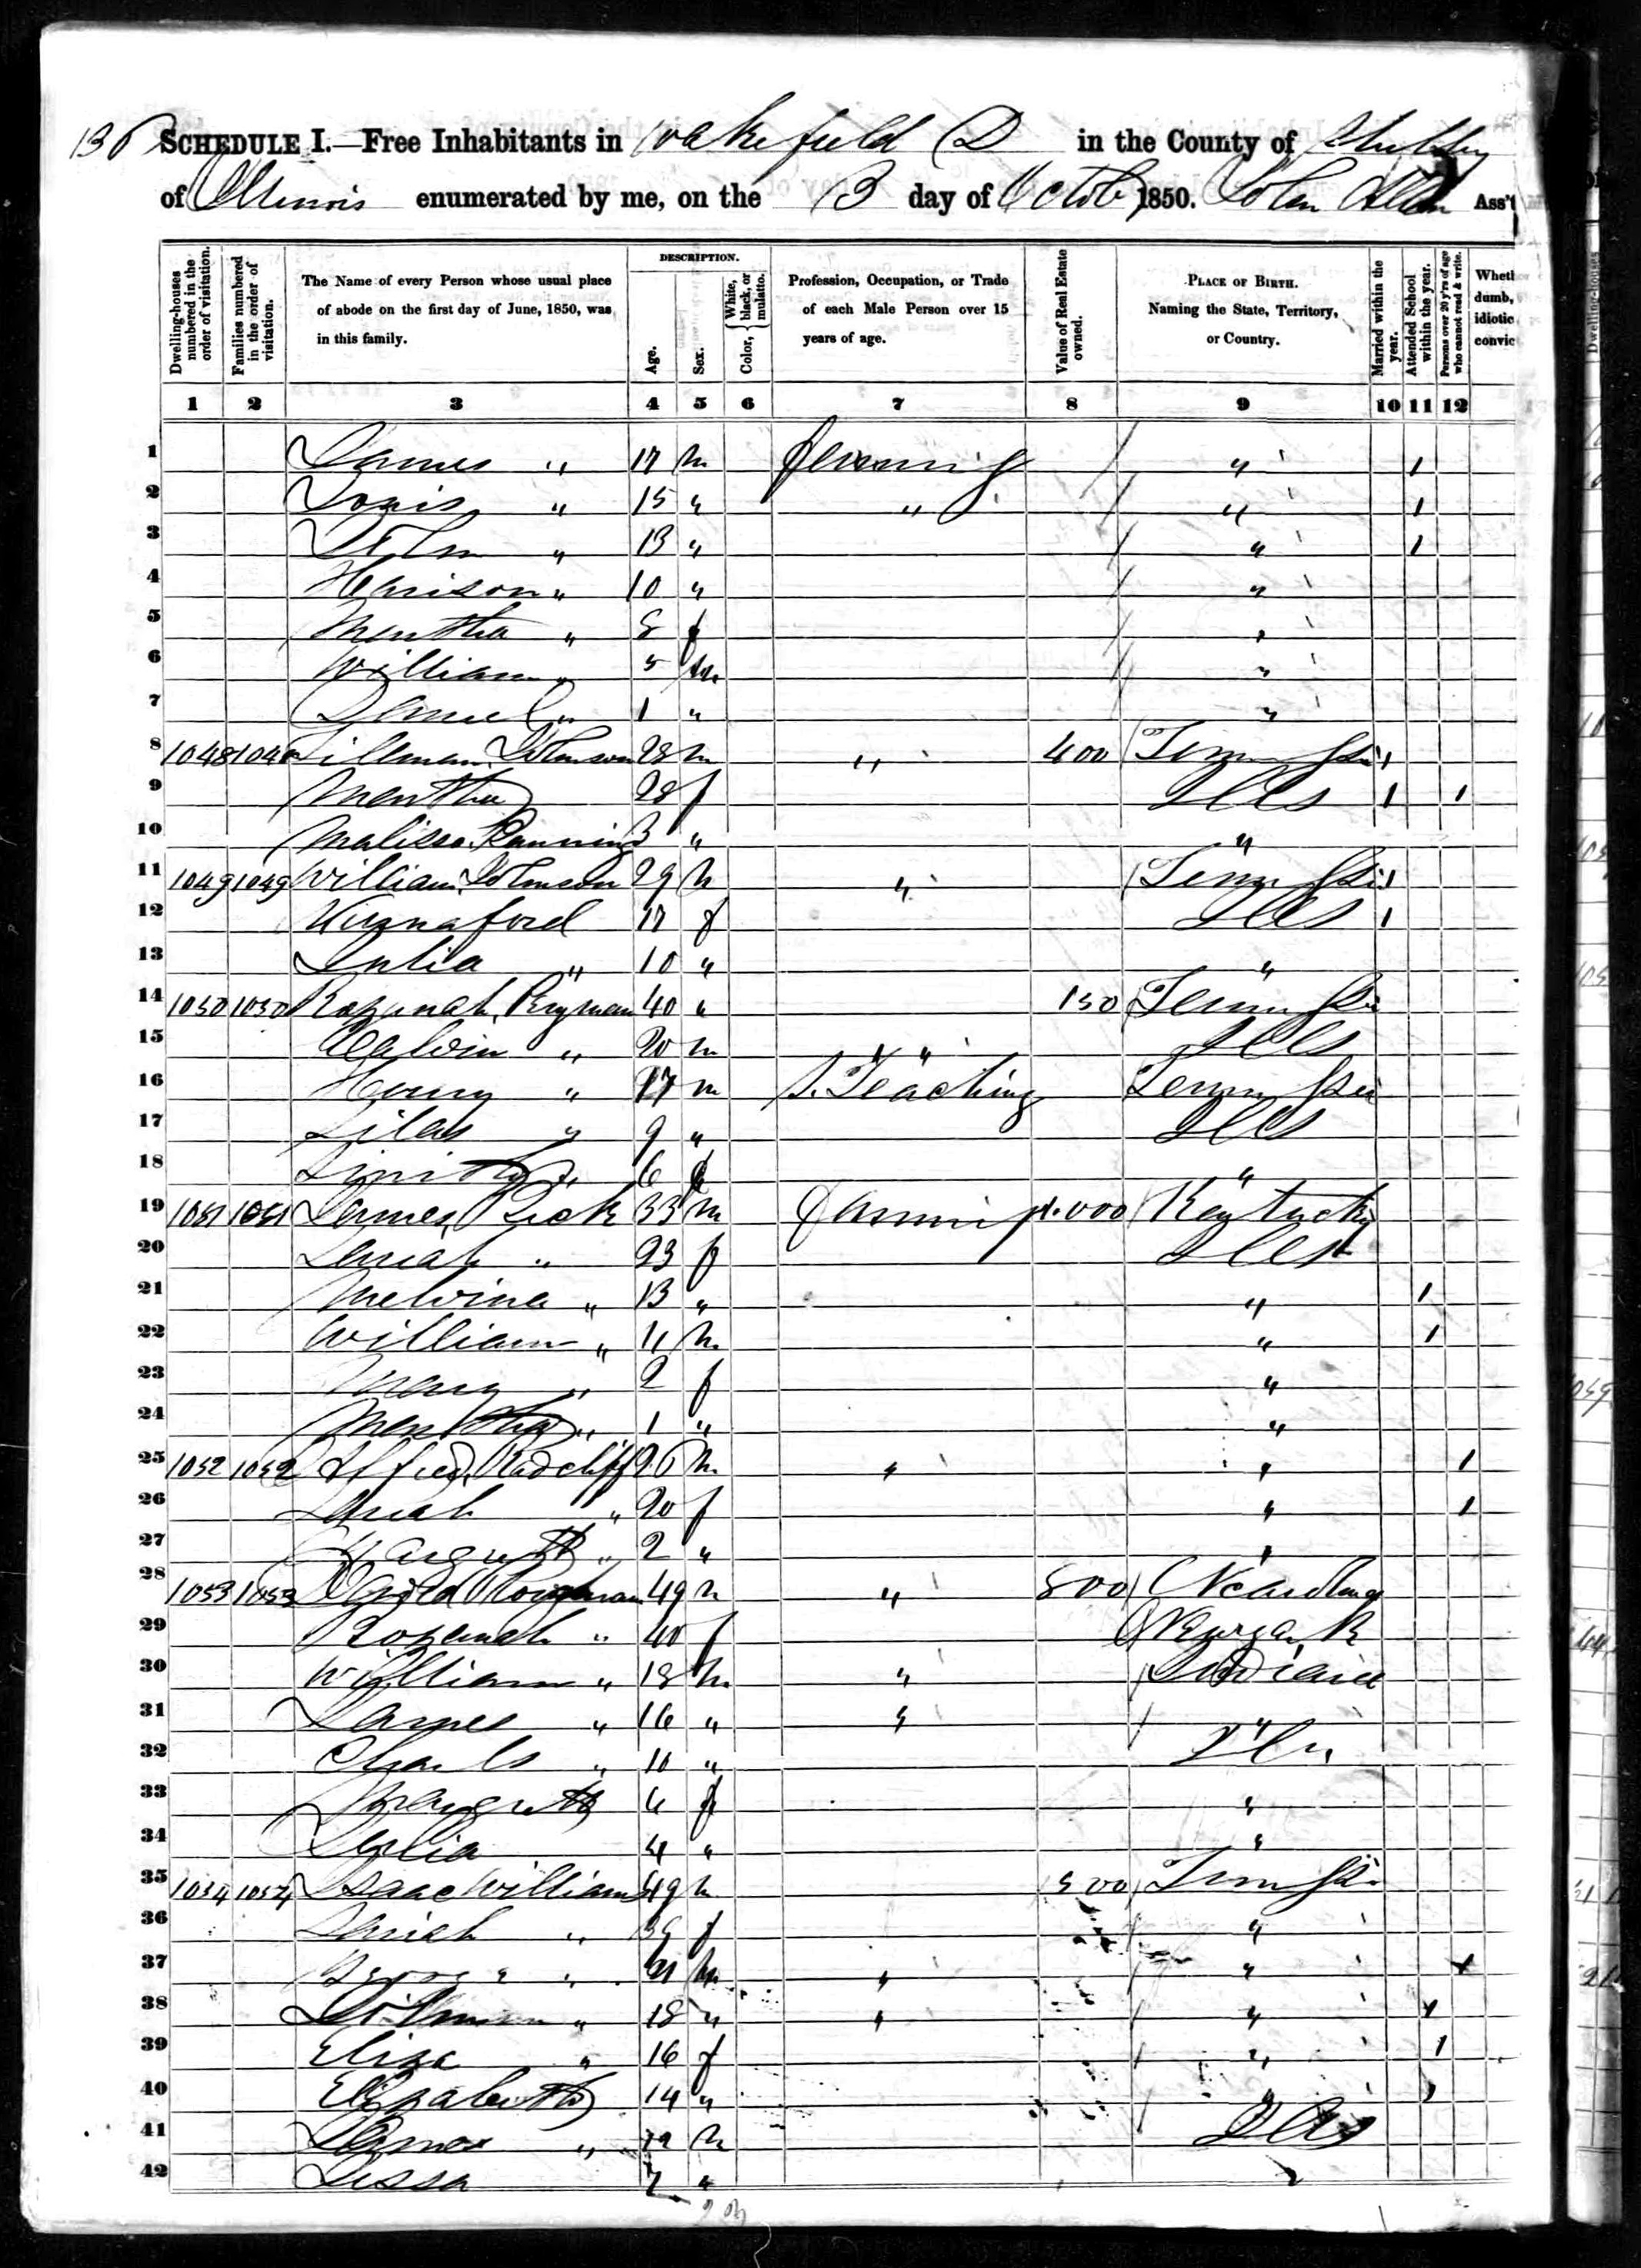 136 SCHEDULE I.—Free Inhabitants in Wakefield D in the County of Shelby
of Illinois enumerated by me, on the 13 day of Octob 1850. John Allen Ass't
Dwelling-houses numbered in the order of visitation.
Families numbered in the order of visitation.
The Name of every Person whose usual place of abode on the first day of June, 1850, was in this family.
DESCRIPTION.
Age.
Sex.
Color, { White, black, or mulatto.
Profession, Occupation, or Trade of each Male Person over 15 years of age.
Value of Real Estate owned.
PLACE OF BIRTH. Naming the State, Territory, or Country.
Married within the year.
Attended School within the year.
Persons over 20 y'rs of age who cannot read & write.
Wheth dumb, idiotic convic
1 2 3 4 5 6 7 8 9 10 11 12
1 James " 17 m Farming " 1
2 " 15 " " " 1
3 John " 13 " " 1
4 Harison " 10 " "
5 Martha " 8 f "
6 William " 5 m "
7 Samuel " 1 " "
8 1048 1048 Tillman Johnson 28 m " 400 Tennessee 1
9 Martha 28 f Ills 1 1
10 Malissa 3 " "
11 1049 1049 William Johnson 29 m " Tennessee 1
12 17 f Ills 1
13 Julia " 10 " "
14 1050 1050 Rozanah Pryman 40 " 150 Tennessee
15 Calvin " 20 m " Ills
16 Henry " 17 m S. Teaching Tennessee
17 Silas " 9 " Ills
18 " 6 f "
19 1051 1051 James 33 m Farming 1.000 Kentucky
20 Sariah " 23 f Ills
21 Melvina " 13 " " 1
22 William " 11 m " 1
23 Mary " 2 f "
24 Martha " 1 " "
25 1052 1052 Alfred Radcliff 26 m " " 1
26 Sariah " 20 f " 1
27 Margarett " 2 " "
28 1053 1053 David 49 m " 800 N Carolina
29 Rozanah " 40 f
30 William " 18 m " Indiana
31 James " 16 " " "
32 Charls " 10 " Ills
33 Margrett 6 f "
34 Julia 4 " "
35 1054 1054 Isaac Williams 49 m 500 Tennessee
36 Sariah " 39 f "
37 George " 21 m " " 1
38 " 18 " " " 1
39 Eliza " 16 f " 1
40 Elizabeth 14 " " 1
41 " 12 m Ills
42 7 " "
Dwelling-houses